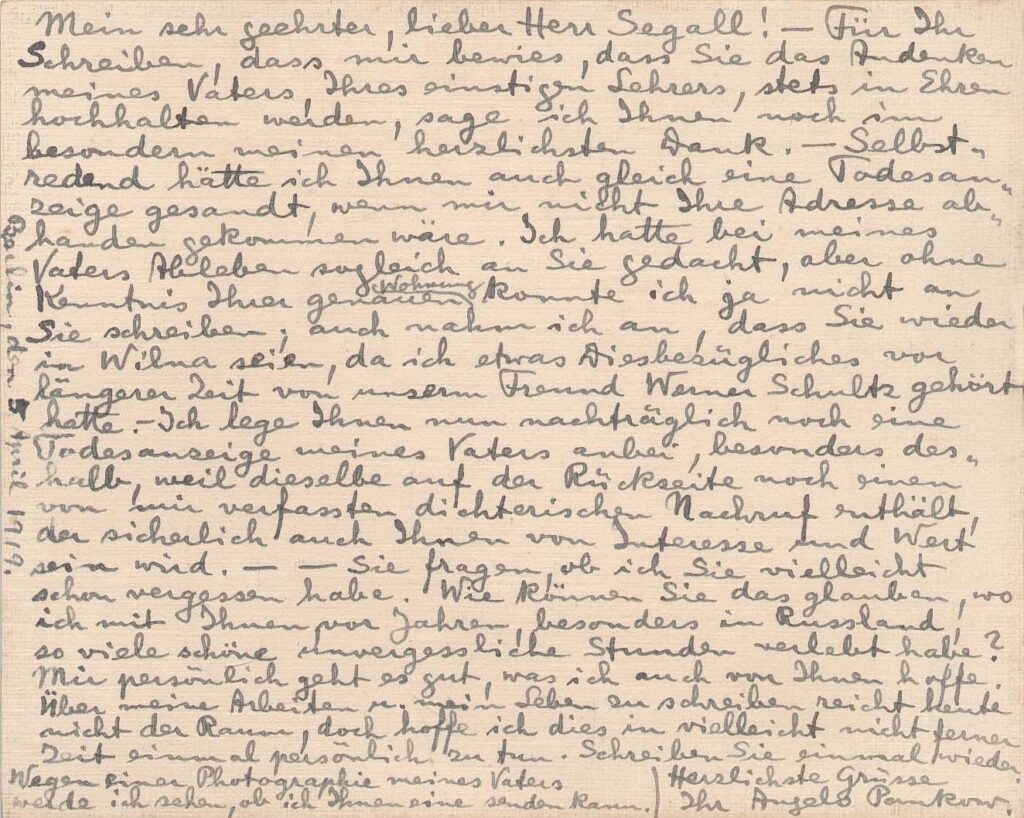 Mein sehr geehrter, lieber Herr Segall! — Für Ihr
Schreiben, dass mir bewies, dass Sie das Andenken
meines Vaters, Ihres einstigen Lehrers, stets in Ehren
hochhalten werden, sage ich Ihnen noch im
besondern meinen herzlichsten Dank. — Selbst-
redend hätte ich Ihnen auch gleich eine Todesan-
zeige gesandt, wenn mir nicht Ihre Adresse ab-
handen gekommen wäre. Ich hatte bei meines
Vaters Ableben sogleich an Sie gedacht, aber ohne
Kenntnis Ihrer genauen Wohnung konnte ich ja nicht an
Sie schreiben; auch nahm ich an, dass Sie wieder
in Wilna seien, da ich etwas Diesbezügliches vor
längerer Zeit von unserm Freund Werner Schultz gehört
hatte. – Ich lege Ihnen nun nachträglich noch eine
Todesanzeige meines Vaters anbei, besonders des-
halb, weil dieselbe auf der Rückseite noch einen
von mir verfassten dichterischen Nachruf enthält,
der sicherlich auch Ihnen von Interesse und Wert
sein wird. — — Sie fragen, ob ich Sie vielleicht
schon vergessen habe. Wie können Sie das glauben, wo
ich mit Ihnen vor Jahren, besonders in Russland,
so viele schöne unvergessliche Stunden verlebt habe?
Mir persönlich geht es gut, was ich auch von Ihnen hoffe.
Über meine Arbeiten u. mein Leben zu schreiben reicht heute
nicht der Raum, doch hoffe ich dies in vielleicht nicht ferner
Zeit einmal persönlich zu tun. Schreiben Sie einmal wieder.
Herzlichste Grüsse
Ihr Angelo Pankow.
Wegen einer Photographie meines Vaters
werde ich sehen, ob ich Ihnen eine senden kann.
Berlin, den 5 April 1919.